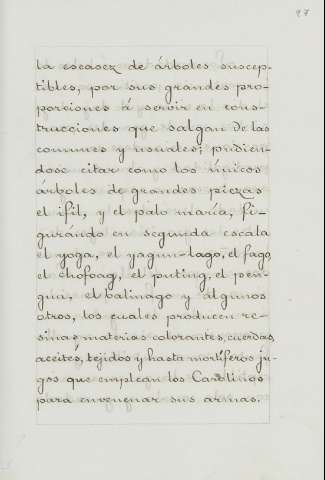 97
la escasez de árboles suscep-
tibles, por sus grandes pro-
porciones á servir en cons-
trucciones que salgan de las
comunes y usuales; pudien-
dose citar como los únicos
árboles de grandes piezas
el ifil, y el palo maría, fi-
gurándo en segunda escala
el yoga, el yagun-lago, el fago,
el chofoag, el puting, el pen-
gua, el balinago y algunos
otros, los cuales producen re-
sinas, materias colorantes, cuerdas,
aceites, tejidos y hasta mortíferos ju-
gos que emplean los Carolinos
para envenenar sus armas.